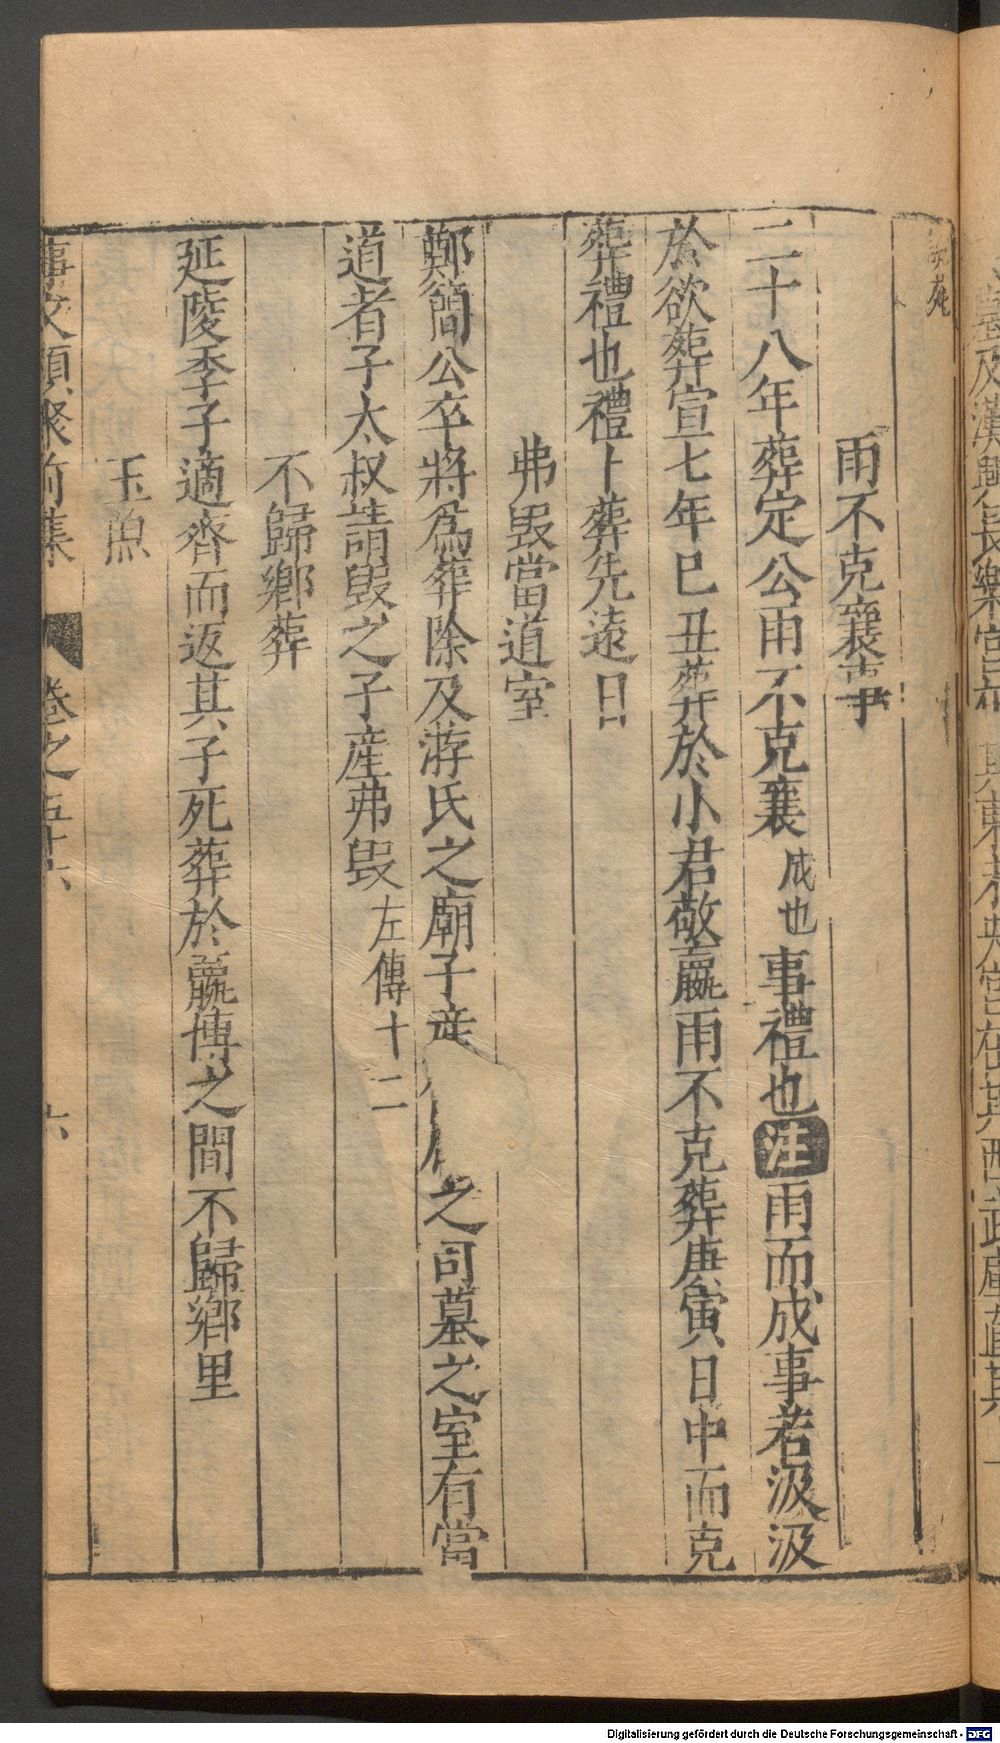 說苑
雨不克襄事
二十八年葬定公雨不克襄成也事禮也注雨而成事若汲汲
於欲葬宣七年巳丑葬於小君敬嬴雨不克葬庚寅日中而克
葬禮也禮卜葬先遠日
弗毀當道室
鄭簡公卒將爲葬除及游氏之廟子產 之司墓之室有當
道者子太叔請毀之子產弗毀左傳十二
不歸鄉葬
延陵季子適齊而返其子死葬於嬴博之間不歸鄉里
玉魚
事文類聚前集 卷之五十六 六
Digitalisierung gefördert durch die Deutsche Forschungsgemeinschaft - DFG